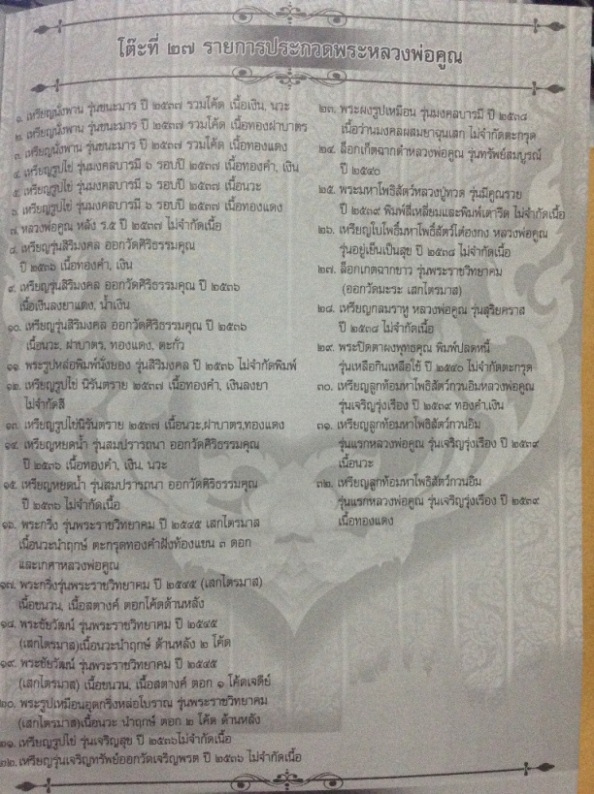 โต๊ะที่ ๒๗ รายการประกวดพระหลวงพ่อคูณ
๑. เหรียญนั่งพาน รุ่นชนะมาร ปี ๒๕๓๗ รวมโค้ด เนื้อเงิน, นวะ
๒. เหรียญนั่งพาน รุ่นชนะมาร ปี ๒๕๓๗ รวมโค้ด เนื้อทองฝาบาตร
๓. เหรียญนั่งพาน รุ่นชนะมาร ปี ๒๕๓๗ รวมโค้ด เนื้อทองแดง
๔. เหรียญรูปไข่ รุ่นมงคลบารมี ๖ รอบปี ๒๕๓๗ เนื้อทองคำ, เงิน
๕. เหรียญรูปไข่ รุ่นมงคลบารมี ๖ รอบปี ๒๕๓๗ เนื้อนวะ
๖. เหรียญรูปไข่ รุ่นมงคลบารมี ๖ รอบปี ๒๕๓๗ เนื้อทองแดง
๗. หลวงพ่อคูณ หลัง ร.๕ ปี ๒๕๓๗ ไม่จำกัดเนื้อ
๘. เหรียญรุ่นสิริมงคล ออกวัดศิริธรรมคุณ
ปี ๒๕๓๖ เนื้อทองคำ, เงิน
๙. เหรียญรุ่นสิริมงคล ออกวัดศิริธรรมคุณ ปี ๒๕๓๖
เนื้อเงินลงยาแดง, น้ำเงิน
๑๐. เหรียญรุ่นสิริมงคล ออกวัดศิริธรรมคุณ ปี ๒๕๓๖
เนื้อนวะ, ฝาบาตร, ทองแดง, ตะกั่ว
๑๑. พระรูปหล่อพิมพ์นั่งยอง รุ่นสิริมงคล ปี ๒๕๓๖ ไม่จำกัดพิมพ์
๑๒. เหรียญรูปไข่ นิรันตราย ๒๕๓๗ เนื้อทองคำ, เงินลงยา
ไม่จำกัดสี
๑๓. เหรียญรูปไข่นิรันตราย ๒๕๓๗ เนื้อนวะ,ฝาบาตร,ทองแดง
๑๔. เหรียญหยดน้ำ รุ่นสมปรารถนา ออกวัดศิริธรรมคุณ
ปี ๒๕๓๖ เนื้อทองคำ, เงิน, นวะ
๑๕. เหรียญหยดน้ำ รุ่นสมปรารถนา ออกวัดศิริธรรมคุณ
ปี ๒๕๓๖ ไม่จำกัดเนื้อ
๑๖. พระกริ่ง รุ่นพระราชวิทยาคม ปี ๒๕๔๕ เสกไตรมาส
เนื้อนวะนำฤกษ์ ตะกรุดทองคำฝังท้องแขน ๓ ดอก
และเกศาหลวงพ่อคูณ
๑๗. พระกริ่งรุ่นพระราชวิทยาคม ปี ๒๕๔๕ (เสกไตรมาส)
เนื้อชนวน, เนื้อสตางค์ ตอกโค้ดด้านหลัง
๑๘. พระชัยวัฒน์ รุ่นพระราชวิทยาคม ปี ๒๕๔๕
(เสกไตรมาส)เนื้อนวะนำฤกษ์ ด้านหลัง ๒ โค้ด
๑๙. พระชัยวัฒน์ รุ่นพระราชวิทยาคม ปี ๒๕๔๕
(เสกไตรมาส) เนื้อชนวน, เนื้อสตางค์ ตอก ๑ โค้ดเจดีย์
๒๐. พระรูปเหมือนอุดกริ่งหล่อโบราณ รุ่นพระราชวิทยาคม
(เสกไตรมาส)เนื้อนวะ นำฤกษ์ ตอก ๒ โค้ด ด้านหลัง
๒๑. เหรียญรูปไข่ รุ่นเจริญสุข ปี ๒๕๓๖ไม่จำกัดเนื้อ
๒๒. เหรียญรุ่นเจริญทรัพย์ออกวัดเจริญพรต ปี ๒๕๓๖ ไม่จำกัดเนื้อ
๒๓. พระผงรูปเหมือน รุ่นมงคลบารมี ปี ๒๕๓๘
เนื้อว่านมงคลผสมยาฉุนเสก ไม่จำกัดตะกรุด
๒๔. ล็อกเก็ตฉากดำหลวงพ่อคูณ รุ่นทรัพย์สมบูรณ์
ปี ๒๕๔๐
๒๕. พระมหาโพธิสัตว์หลวงปู่ทวด รุ่นมีคูณรวย
ปี ๒๕๓๙ พิมพ์สี่เหลี่ยมและพิมพ์เตารีด ไม่จำกัดเนื้อ
๒๖. เหรียญใบโพธิ์มหาโพธิ์สัตว์ไต้ฮงกง หลวงพ่อคูณ
รุ่นอยู่เย็นเป็นสุข ปี ๒๕๓๘ ไม่จำกัดเนื้อ
๒๗. ล็อกเกตฉากขาว รุ่นพระราชวิทยาคม
(ออกวัดมะระ เสกไตรมาส)
๒๘. เหรียญกลมราหู หลวงพ่อคูณ รุ่นสุริยคราส
ปี ๒๕๓๘ ไม่จำกัดเนื้อ
๒๙. พระปิดตาผงพุทธคุณ พิมพ์ปลดหนี้
รุ่นเหลือกินเหลือใช้ ปี ๒๕๔๐ ไม่จำกัดตะกรุด
๓๐. เหรียญลูกท้อมหาโพธิสัตว์กวนอิมหลวงพ่อคูณ
รุ่นเจริญรุ่งเรือง ปี ๒๕๓๙ ทองคำ,เงิน
๓๑. เหรียญลูกท้อมหาโพธิสัตว์กวนอิม
รุ่นแรกหลวงพ่อคูณ รุ่นเจริญรุ่งเรือง ปี ๒๕๓๙
เนื้อนวะ
๓๒. เหรียญลูกท้อมหาโพธิสัตว์กวนอิม
รุ่นแรกหลวงพ่อคูณ รุ่นเจริญรุ่งเรือง ปี ๒๕๓๙
เนื้อทองแดง